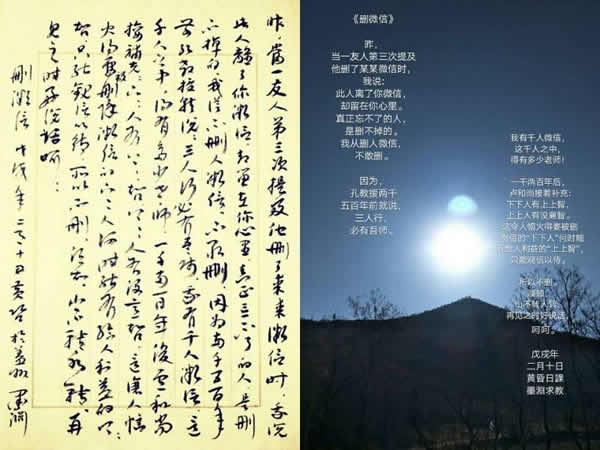 昨，当一友人第三次提及他删了某某微信时，我说
此人离了你微信，却留在你心里。真正忘不了的人，是删
不掉的。我从不删人微信，不敢删。因为，两千五百年
前孔教授就说，三人行必有吾师。我有千人微信，这
千人之中，得有多少老师！一千两百年后，卢和尚
接着补充：下下人有上上智，上上人有没意智。这令人恼
火得要被删微信的下下人何时能有给人利益的上上
智，只能观信以待。所以不删，淡然。山不转水转，再
见之时好说话呵呵
删微信 戊戌年二月十日黄昏于 墨渊
《删微信》
昨，
当一友人第三次提及
他删了某某微信时，
我说：
此人离了你微信，
却留在你心里。
真正忘不了的人，
是删不掉的。
我从删人微信，
不敢删。
因为，
孔教授两千
五百年前就说，
三人行，
必有吾师。
我有千人微信，
这千人之中，
得有多少老师！
一千两百年后，
卢和尚接着补充：
下下人有上上智，
上上人有没意智。
这令人恼火得要被删
微信的“下下人”何时能
有给人利益的“上上智”，
只能观信以待。
所以不删，
淡然。
山不转人转，
再见之时好说话，
呵呵。
戊戌年
二月十日
黄昏日课
墨渊求教